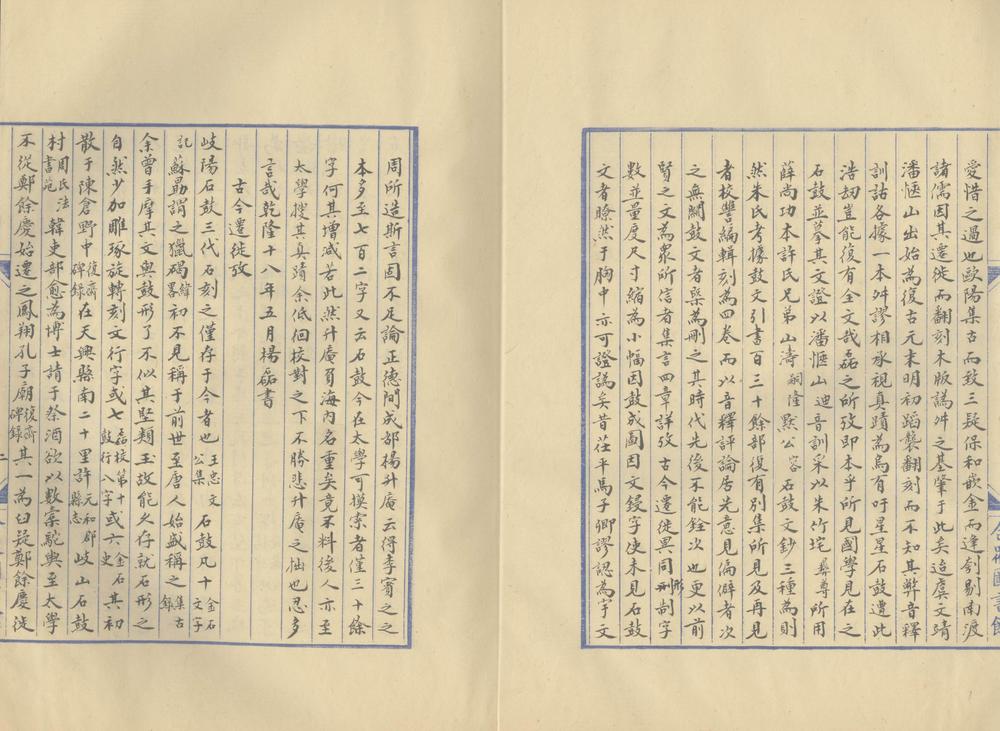 愛惜之過也歐陽集古而致三疑保和嵌金而逢刳剔南渡
諸儒因其遷徙而翻刻木版譌舛之基肇于此矣迨虞文靖
潘愜山出始為復古元末明初蹈襲翻刻而不知其弊音釋
訓詁各據一本舛謬相承視真蹟為烏有吁星星石鼓遭此
浩刧豈能復有全文哉磊之所攷即本乎所見國學見在之
石鼓並摹其文證以潘愜山迪音訓采以朱竹垞彝尊所用
薛尚功本許氏兄弟山濤嗣隆默公容石鼓文鈔三種為則
然朱氏考據鼓文引書百三十餘部復有別集所見及再見
者校讐編輯刻為四卷而以音釋評論居先意見偏僻者次
之無關鼓文者槩為刪之其時代先後不能銓次也更以前
賢之文為衆所信者集言四章詳攷古今遷徙異同形制字
數並量度尺寸縮為小幅因鼓成圖因文錽字使未見石鼓
文者瞭然于胸中亦可證譌矣昔茌平馬子卿謬認為宇文
周所造斯言固不足論正德間成都楊升庵云得李賓之之
本多至七百二字又云石鼓今在太學可摸索者僅三十餘
字何其增減若此然升庵負海內名重矣竟不料後人亦至
太學搜其真蹟余低佪校對之下不勝悲升庵之拙也忍多
言哉乾隆十八年五月楊磊書
古今遷徙攷
岐陽石鼓三代石刻之僅存于今者也王忠文公集石鼓凡十金石文字
記蘇勗謂之獵碣緯畧初不見稱于前世至唐人始盛稱之集古錄
余曾手摩其文與鼓形了不似其堅類玉故能久存就石形之
自然少加雕琢旋轉刻文行字或七磊校第十鼓行八字或六金石史其初
散于陳倉野中復齋碑錄在天興縣南二十里許元和郡縣志岐山石鼓
村周氏法書苑韓吏部愈為博士請于祭酒欲以數橐駝輿至太學
不從鄭餘慶始遷之鳳翔孔子廟復齋碑錄其一為臼疑鄭餘慶徙